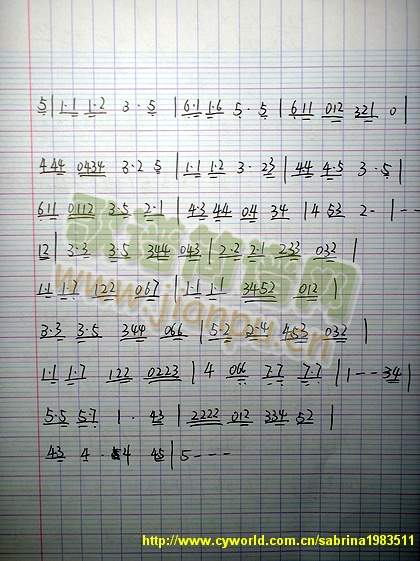 5 | 1·1 1·2 3· 5 | 6·1 1·6 5· 5 | 6 11 012 321 0 |
444 0434 3·2 5 | 1·1 1·2 3· 23 | 44 4·5 3· 5 |
611 0112 3·5 2·1 | 4·3 44 04 34 | 4 53 2- | --
12 | 3·3 3·5 344 043 | 2·2 2·1 233 032 |
1·1 1·7 122 067 | 1·1 1·1 3452 012 |
3·3 3·5 344 066 | 5·2 2·4 453 032 |
1·1 1·7 122 0223 | 4 066 7·7 7·7 | 1 - - 34 |
5·5 5·7 1· 43 | 2222 012 334 52 |
43 4· 4 45 | 5 - - -
www.jianpu.cn
http://www.cyworld.com.cn/sabrina1983511